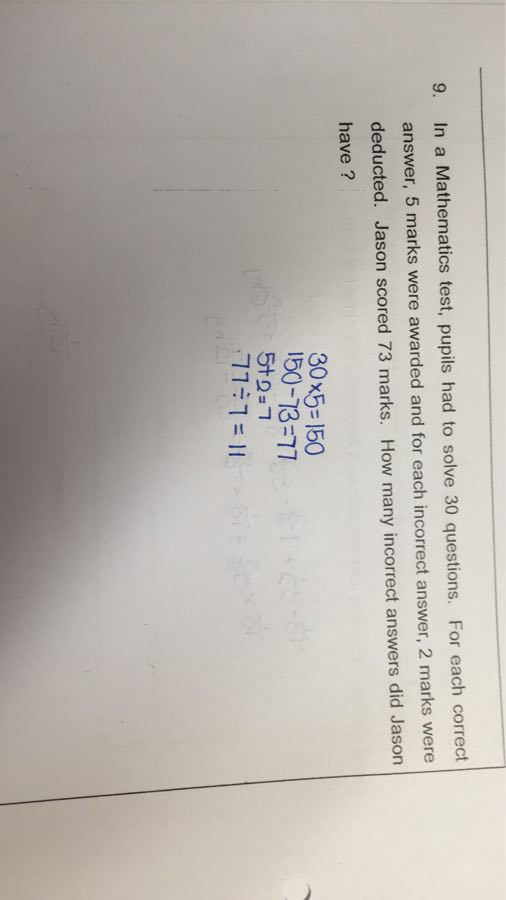 9. In a Mathematics test, pupils had to solve 30 questions. For each correct
answer, 5 marks were awarded and for each incorrect answer, 2 marks were
deducted. Jason scored 73 marks. How many incorrect answers did Jason
have ?
30×5=150
150-73=77
5+2=7
77÷7=11